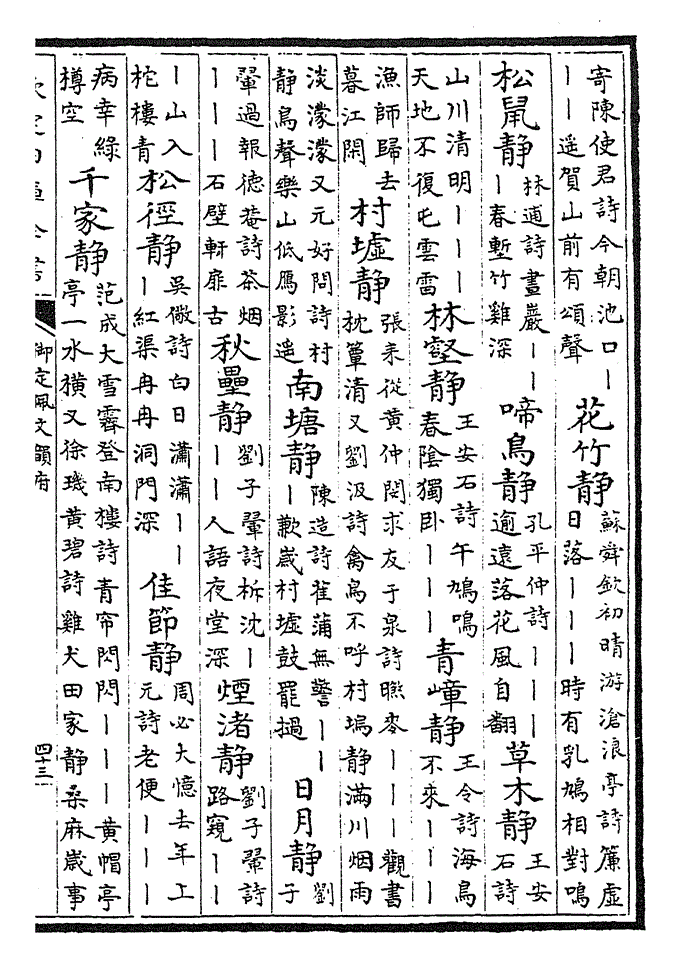 寄陳使君詩今朝池口丨
丨丨遥賀山前有頌聲
花竹静
蘇舜欽初晴游滄浪亭詩簾虛
日落丨丨丨時有乳鳩相對鳴
松鼠静
林逋詩畫巖丨丨
丨春塹竹雞深
啼鳥静
孔平仲詩丨丨丨
逾遠落花風自翻
草木静
王安
石詩
山川清明丨丨丨
天地不復屯雲雷
林壑静
王安石詩午鳩鳴
春陰獨卧丨丨丨
青嶂静
王令詩海鳥
不來丨丨丨
漁師歸去
暮江閑
村墟静
張耒從黄仲閔求友于泉詩䁱麥丨丨丨觀書
枕簟清又劉汲詩禽鳥不呼村塢静滿川烟雨
淡濛濛又元好問詩村
静鳥聲樂山低鴈影遥
南塘静
陳造詩萑蒲無警丨丨
丨歉歲村墟鼓罷撾
日月静
劉
子
翬過報德菴詩茶烟
丨丨丨石壁軒扉古
秋壘静
劉子翬詩柝沈丨
丨丨人語夜堂深
煙渚静
劉子翬詩
路窺丨丨
丨山入
柁樓青
松徑静
吳儆詩白日瀟瀟丨丨
丨紅渠冉冉洞門深
佳節静
周必大憶去年上
元詩老便丨丨丨
病幸綠
樽空
千家静
范成大雪霽登南樓詩青帘閃閃丨丨丨黄帽亭
亭一水横又徐璣黄碧詩雞犬田家静桑麻歲事
欽定四庫全書
御定佩文韻府
四十三